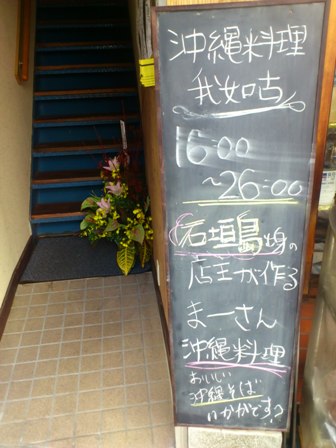 沖縄料理
我如古
16:00
~26:00
石垣島出身の
店主が作る
まーさん
沖縄料理
おいしい
沖縄そば
いかがです?